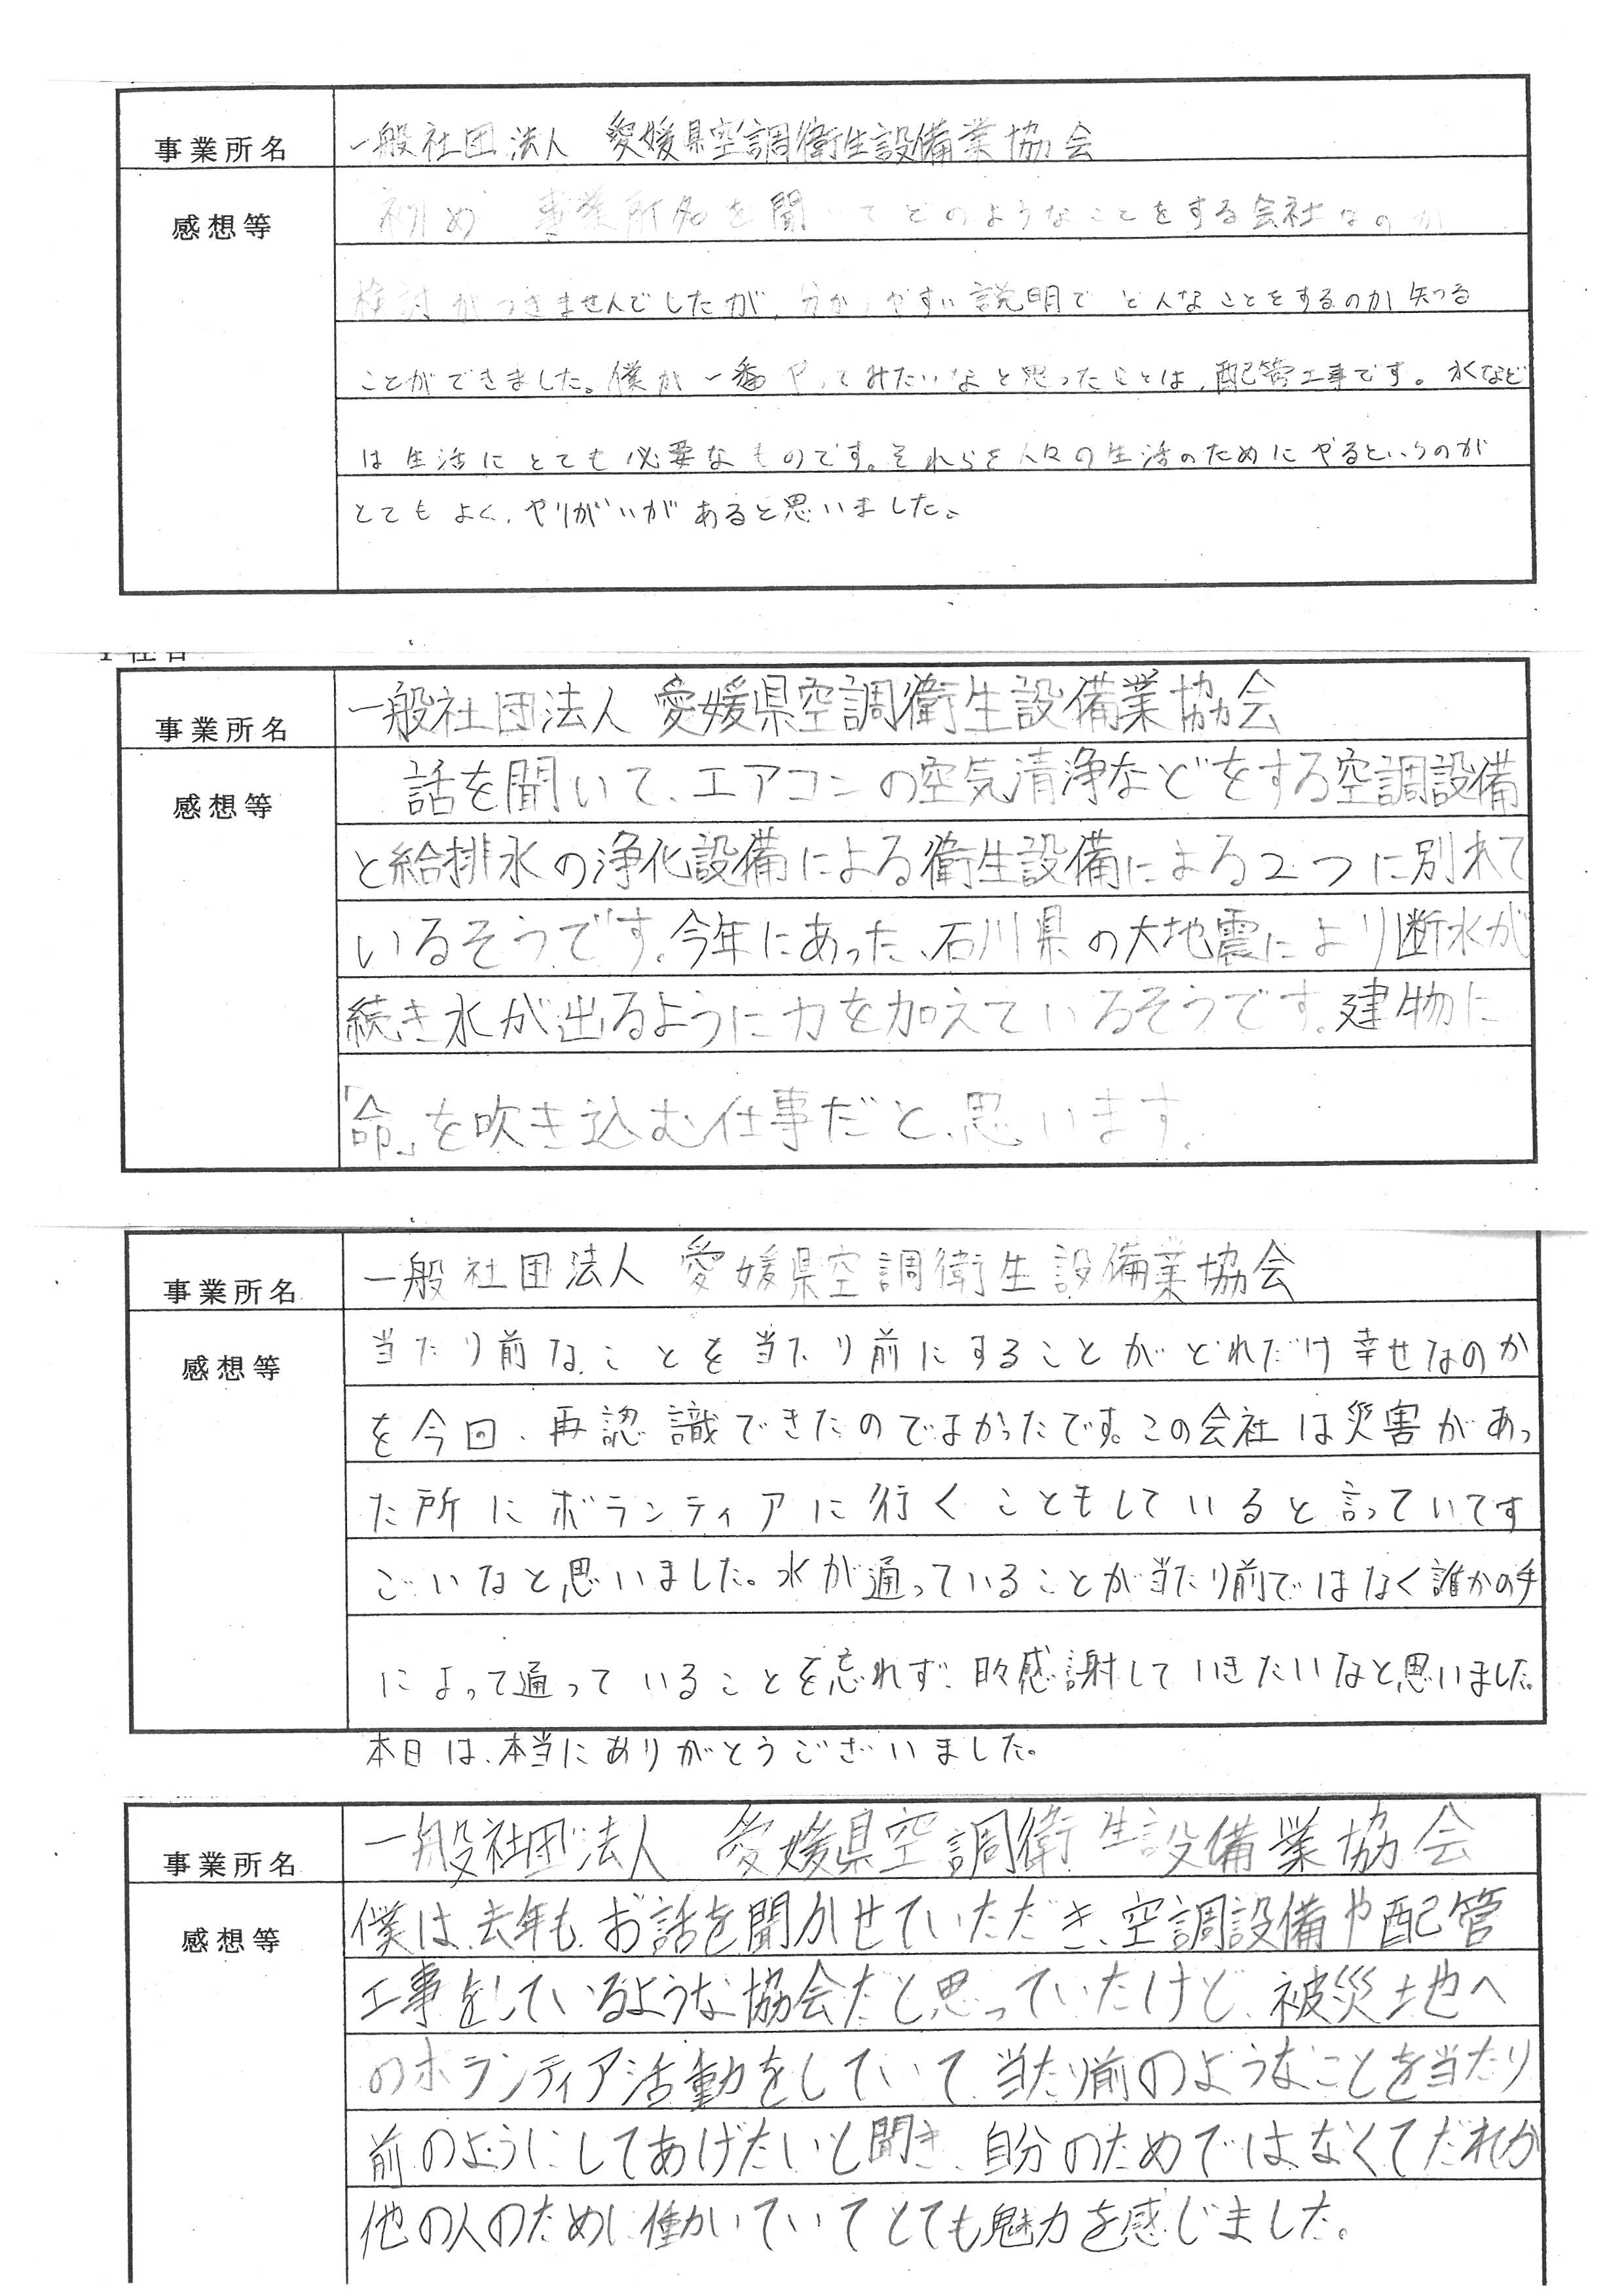 事業所名 一般社団法人 愛媛県空調衛生設備業協会
感想等 初め 事業所名を聞 てどのようなことをする会社なのか
検討がつきませんでしたが、分かりやすい説明でどんなことをするのか知つる
ことができました。僕が一番やってみたいなと思ったことは、配管工事です。水など
は生活にとても必要なものです。それらを人々の生活のためにやるというのが
とてもよく、やりがいがあると思いました。
事業所名 一般社団法人 愛媛県空調衛生設備業協会
感想等 話を聞いて、エアコンの空気清浄などをする空調設備
と給排水の浄化設備による衛生設備による2つに別れて
いるそうです。今年にあった、石川県の大地震により断水が
続き水が出るように力を加えているそうです。建物に
「命」を吹き込む仕事だと、思います。
事業所名 一般社団法人 愛媛県空調衛生設備業協会
感想等 当たり前なことを当たり前にすることがどれだけ幸せなのか
を今回、再認識できたのでよかったです。この会社は災害があっ
た所にボランティアに行くこともしていると言っていてす
ごいなと思いました。水が通っていることが当たり前ではなく誰かの手
によって通っていることを忘れず、日々感謝していきたいなと思いました。
本日は、本当にありがとうございました。
事業所名 一般社団法人 愛媛県空調衛生設備業協会
感想等 僕は、去年も、お話を聞かせていただき、空調設備や配管
工事をしているような協会だと思っていたけど、被災土地へ
のボランティア活動をしていて、当たり前のようなことを当たり
前のようにしてあげたいと聞き、自分のためではなくてだれか
他の人のために働いていてとても魅力を感じました。